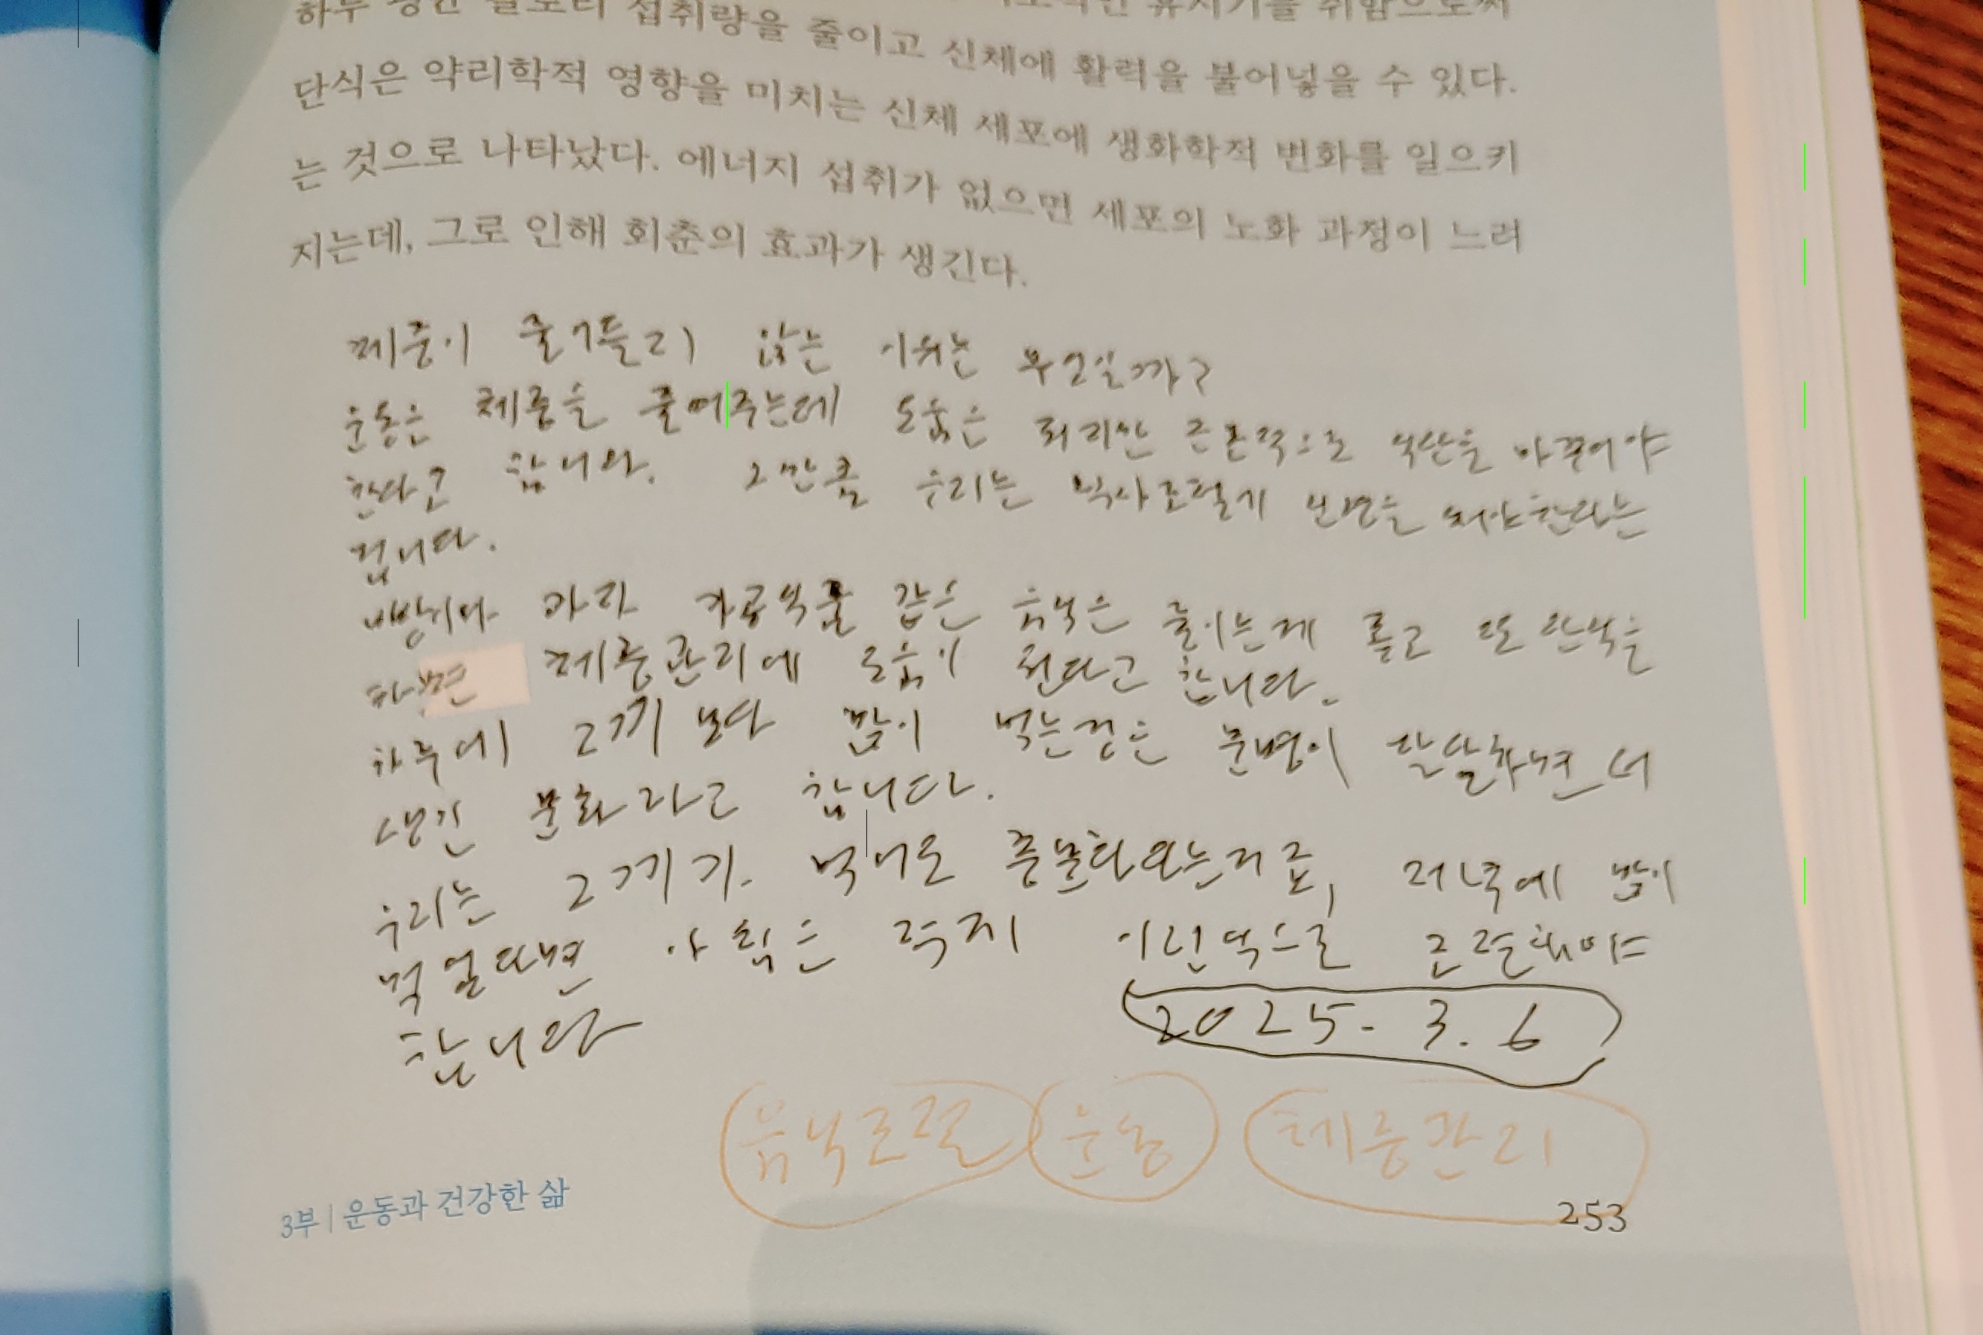 섭취량을 줄이고 신체에 활력을 불어넣을 수 있다.
단식은 약리학적 영향을 미치는 신체 세포에 생화학적 변화를 일으키
는 것으로 나타났다. 에너지 섭취가 없으면 세포의 노화 과정이 느려
지는데, 그로 인해 회춘의 효과가 생긴다.
체중이 줄어들지 않는 이유는 무엇일까?
운동은 체중을 줄여주는데 도움은 되지만 근본적으로 식단을 바꾸어야
한다고 합니다. 그만큼 우리는 식사조절
겁니다.
빵이나 과자 가공식품 같은 음식은 줄이는게 좋고 또 단식을
하면 체중관리에 도움이 된다고 합니다.
하루에 2끼 보다 많이 먹는것은 문명이 발달하면서
생긴 문화라고 합니다.
우리는 2끼 먹어도 충분하다는거죠, 저녁에 많이
먹었다면 아침은 먹지
합니다
2025. 3. 6
음식조절 운동 체중관리
3부 | 운동과 건강한 삶
253